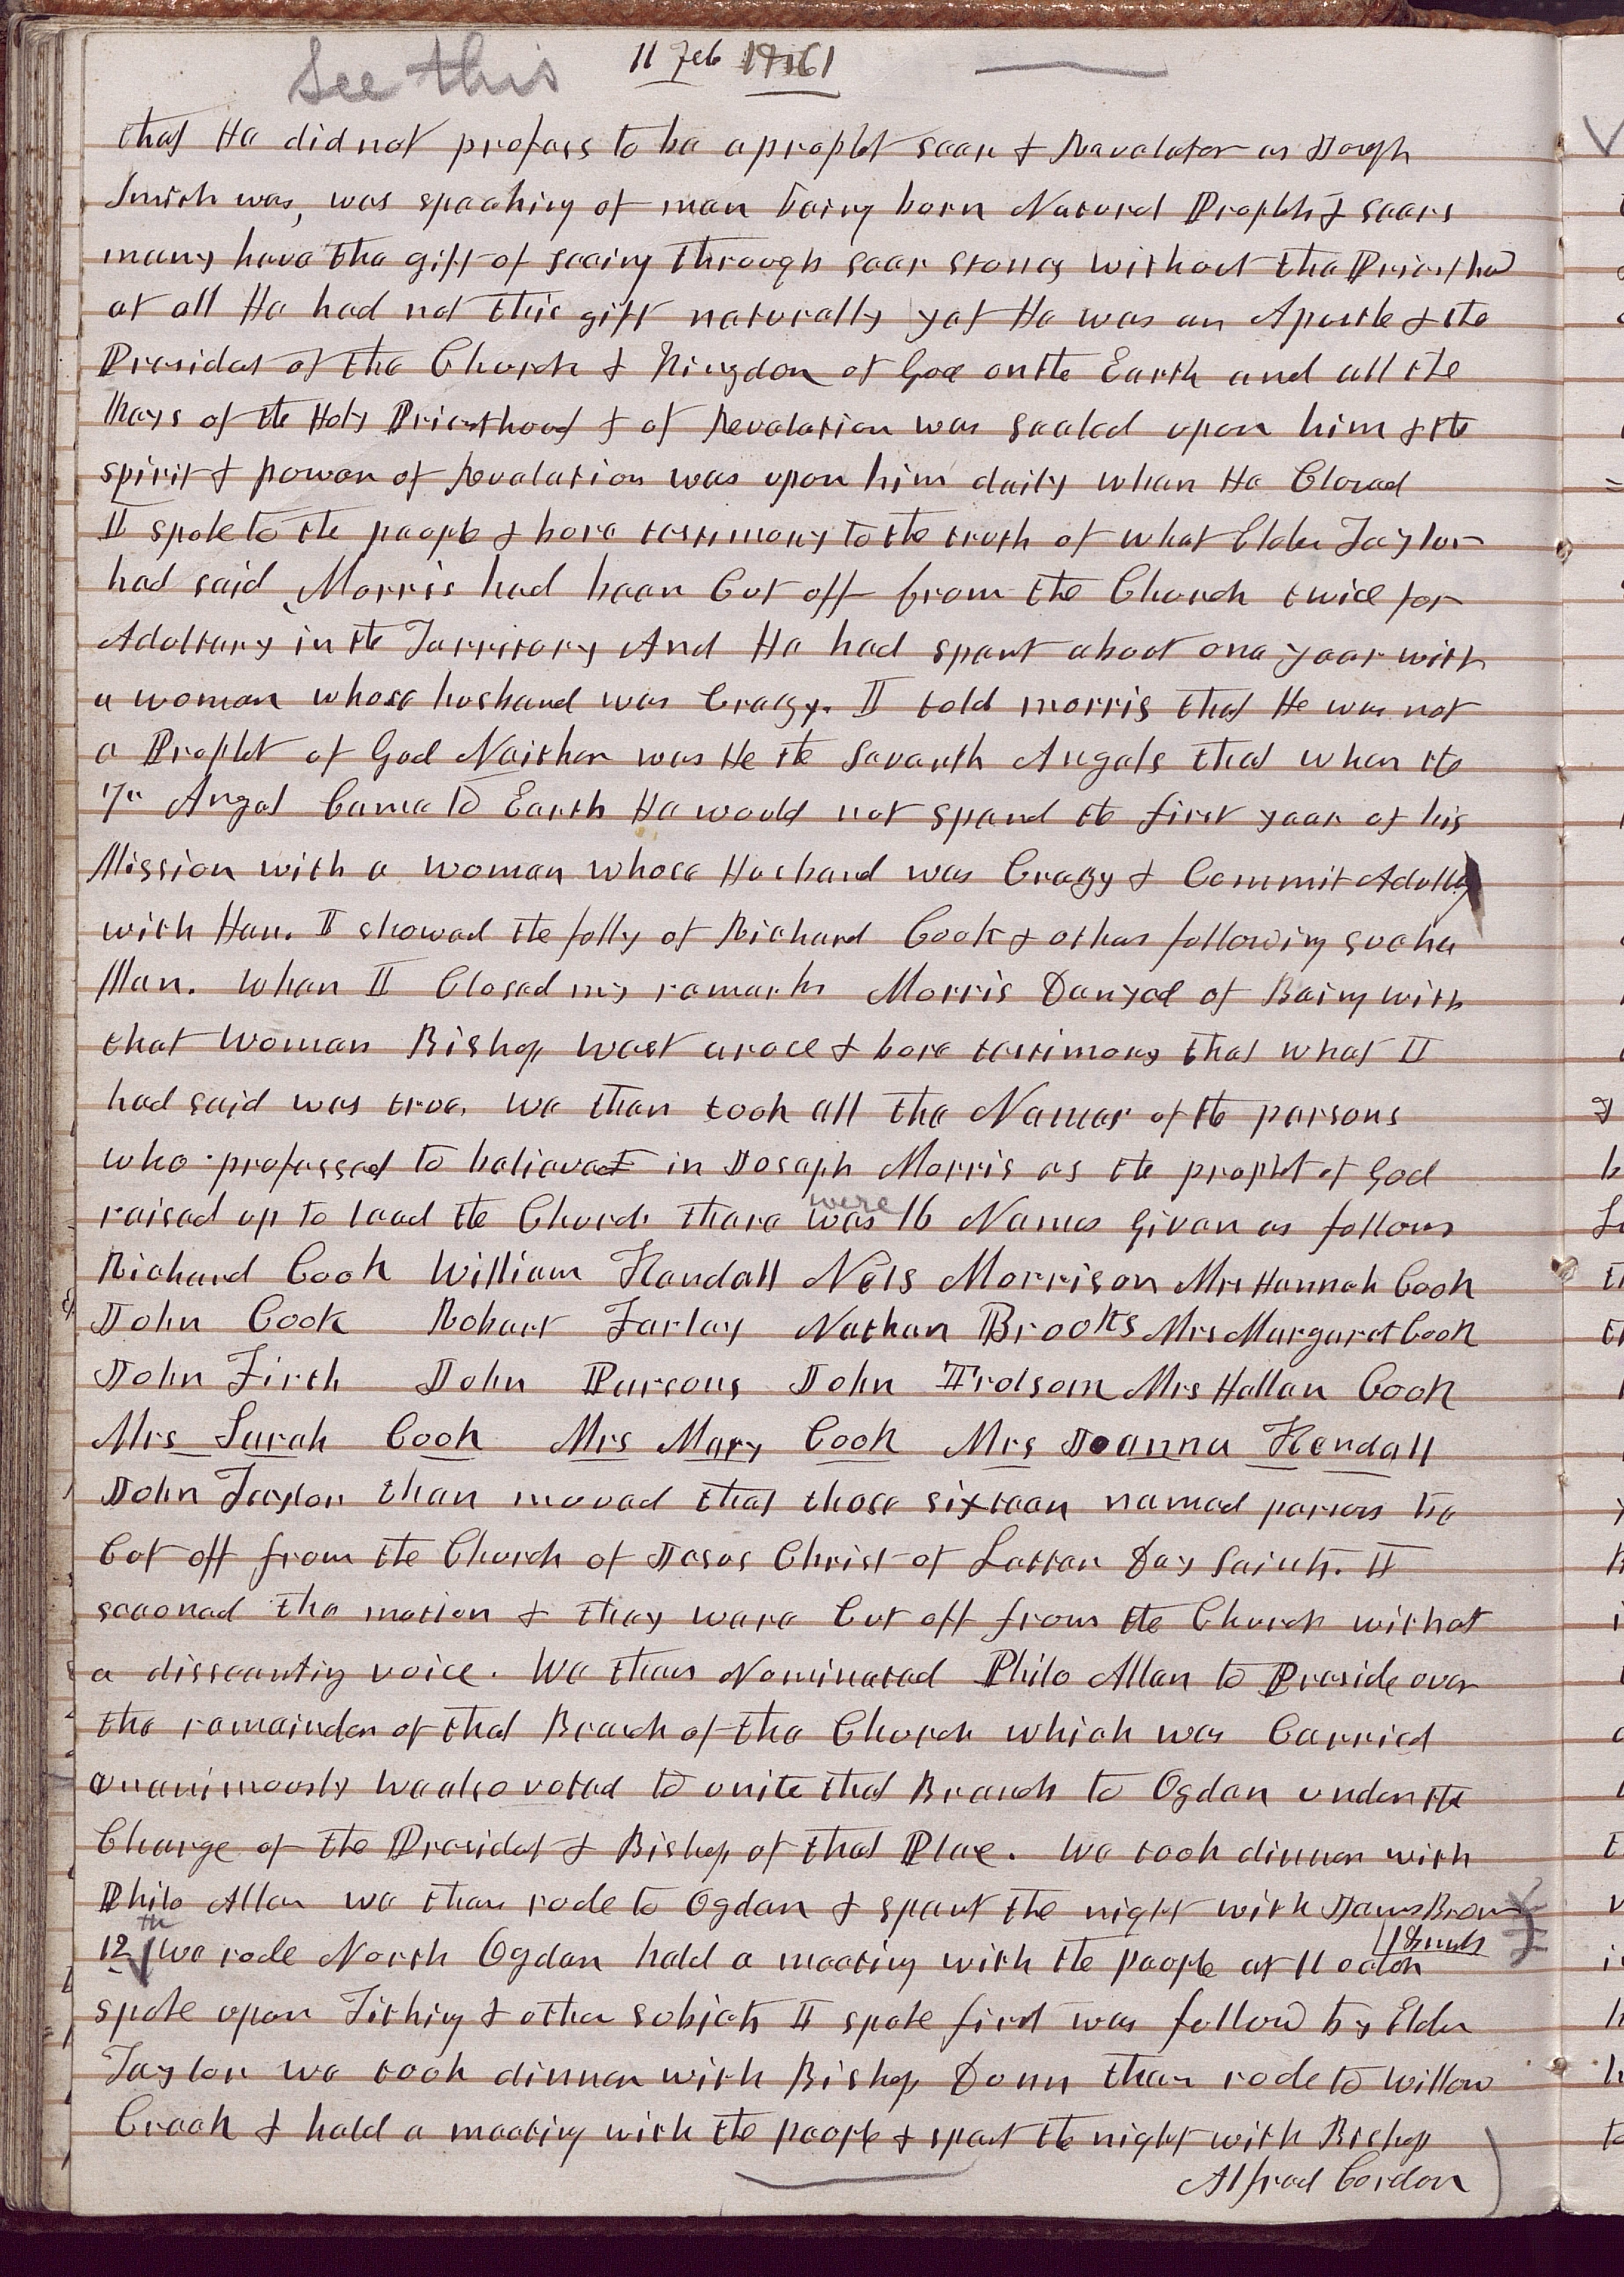 See this 11 Feb 1861
that He did not profess to be a prophet seer & Revelator as Joseph
Smith was, was speaking of men being born Natural Prophets & seers
many have the gift of seeing through seer stones without the Priesthood
at all He had not this gift naturally yet He was an Apostle & the
Presidet of the Church & Kingdom of God on the Earth and all the
Keys of the Holy Priesthood & of Revelation was sealed upon him & the
spirit & power of Revelation was upon him daily when He Closed
I spoke to the people & bore testimony to the truth of what Elder Taylor
had said Morris had been Cut off from the Church twice for
Adoltery in the Territory And He had spent about one year with
a woman whose husband was Crazy. I told morris that He was not
a Prophet of God Neither was He the Seventh Angels that when the
7th Angel Came to Earth He would not spend the first year of his
Mission with a woman whose Husband was Crazy & Commit Adultery
with Her. I showed the folly of Richard Cook & others following such a
Man. When I Closed my remarks Morris Denyed of Being with
that Woman Bishop West arose & bore testimony that what I
had said was true. We then took all the Names of the persons
who professed to believe in Joseph Morris as the prophet of God
raised up to lead the Church there was were 16 Names Given as follows
Richard Cook William Kendall Nels Morrison Mrs Hannah Cook
John Cook Robart Farley Nathan Brooks Mrs Margaret Cook
John Firth John Parsons John Trolsom Mrs Hellen Cook
Mrs Sarah Cook Mrs Mary Cook Mrs Joanna Kendall
John Taylor then moved that those sixteen named persons be
Cut off from the Church of Jesus Christ of Latter Day Saints. I
seconed the motion & they were Cut off from the Church without
a dissenting voice. We then Nominated Philo Allen to Preside over
the remainder of that Branch of the Church which was Carried
unanimously we also voted to unite that Branch to Ogden under the
Charge of the Presidet & Bishop of that Place. We took dinner with
Philo Allen we then rode to Ogden & spent the night with James Brown
12th We rode North Ogden held a meeting with the people at 11 oclok
spoke upon Tithing & other subjets I spoke first was follow by Elder
Taylor we took dinner with Bishop Dunn then rode to Willow
Creek & held a meeting with the people & spent the night with Bishop
Alfred Cordon